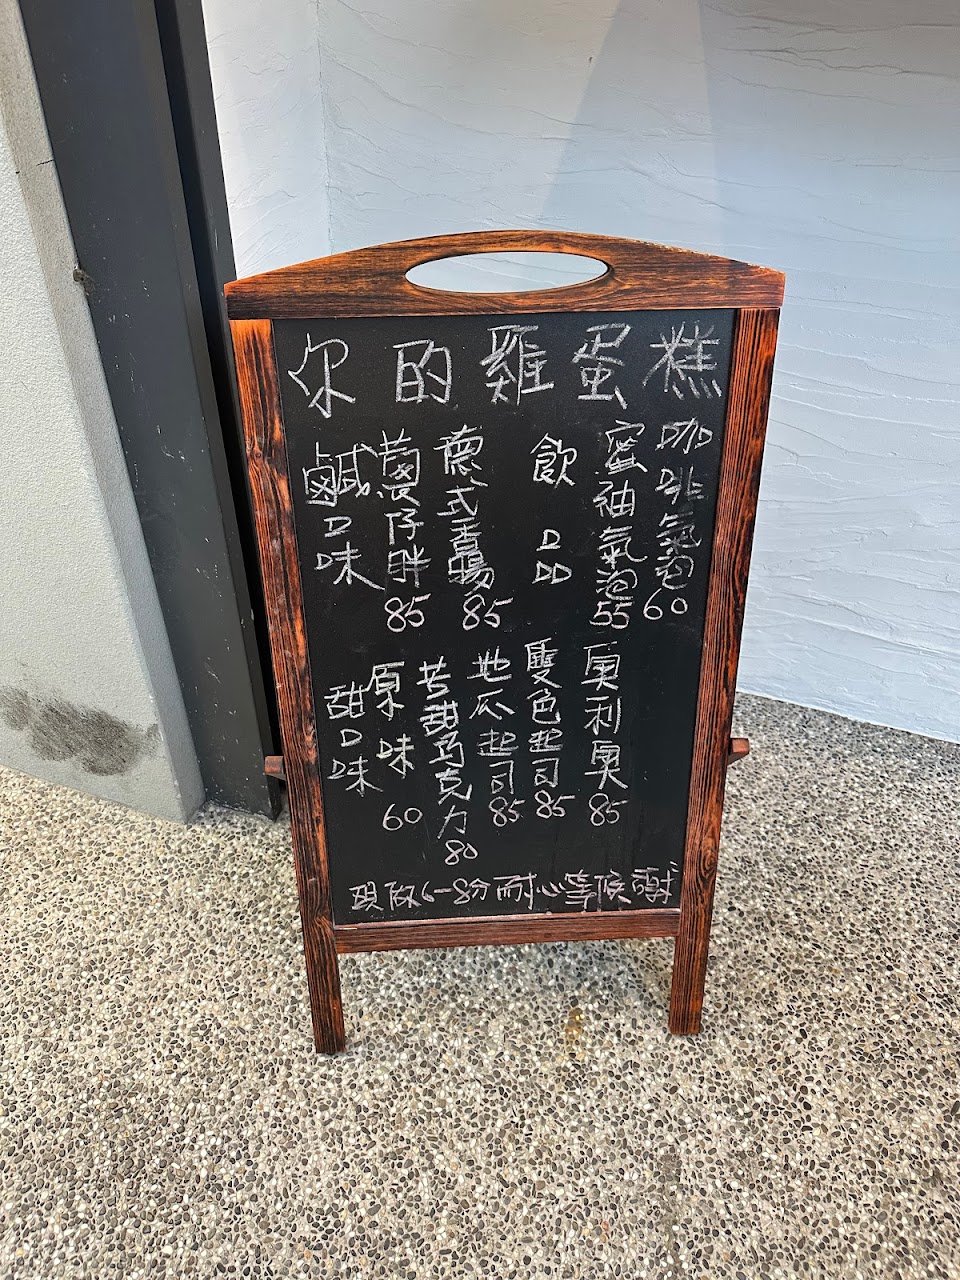 你的雞蛋糕
鹹口味
薯仔胖
85
德式香腸
85
飲品
蜜柚氣泡
55
咖啡氣泡
60
甜口味
原味
60
苦甜巧克力
80
地瓜起司
85
雙色起司
85
奧利奧
85
現做6-8分耐心等候謝